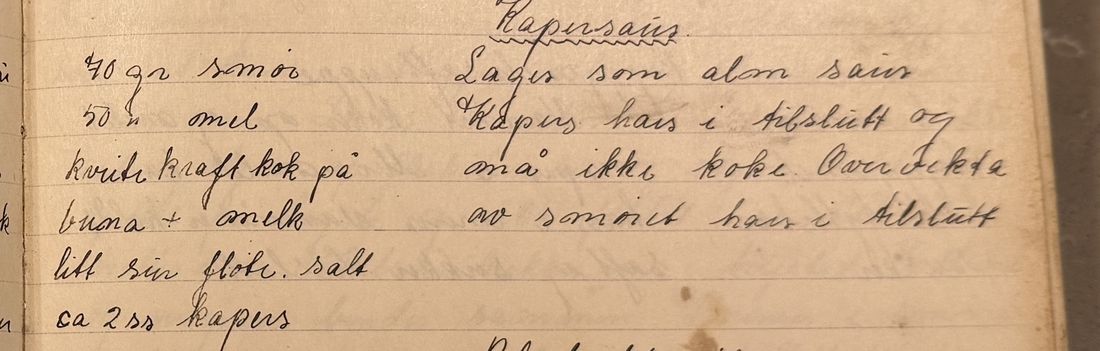 Kapersaus
70 gr smør
50 " mel
kvite kraft kok på
buna + melk
litt sur fløte. salt
ca 2 ss kapers
Lages som alm saus
Kapers haes i tilslutt og
må ikke koke. Overvekta
av smøret haes i tilslutt